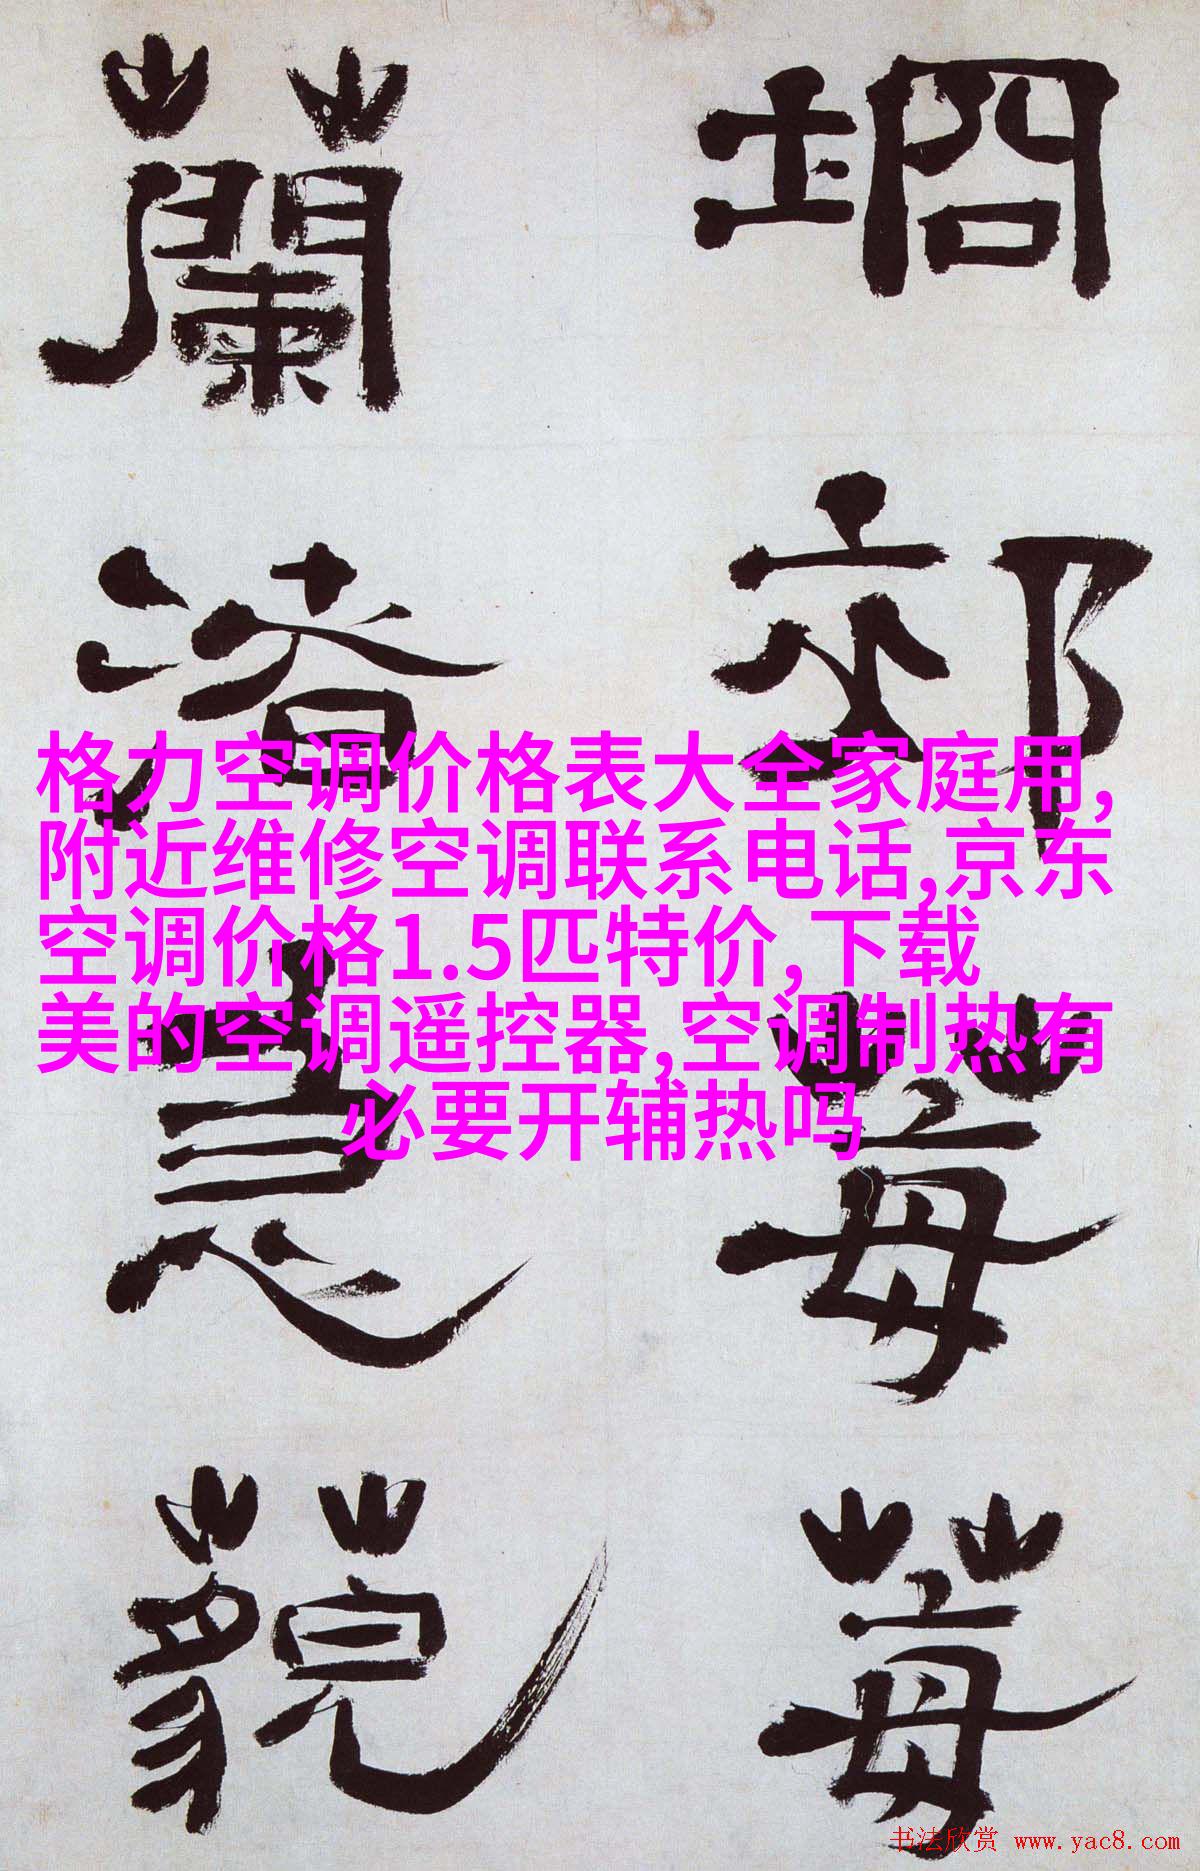 坰郊莓莓
蘭渚
藐
格力空调价格表大全家庭用,
附近维修空调联系电话,京东
空调价格1.5匹特价,下载
美的空调遥控器,空调制热有
必要开辅热吗
书法欣赏 www.yac8.com